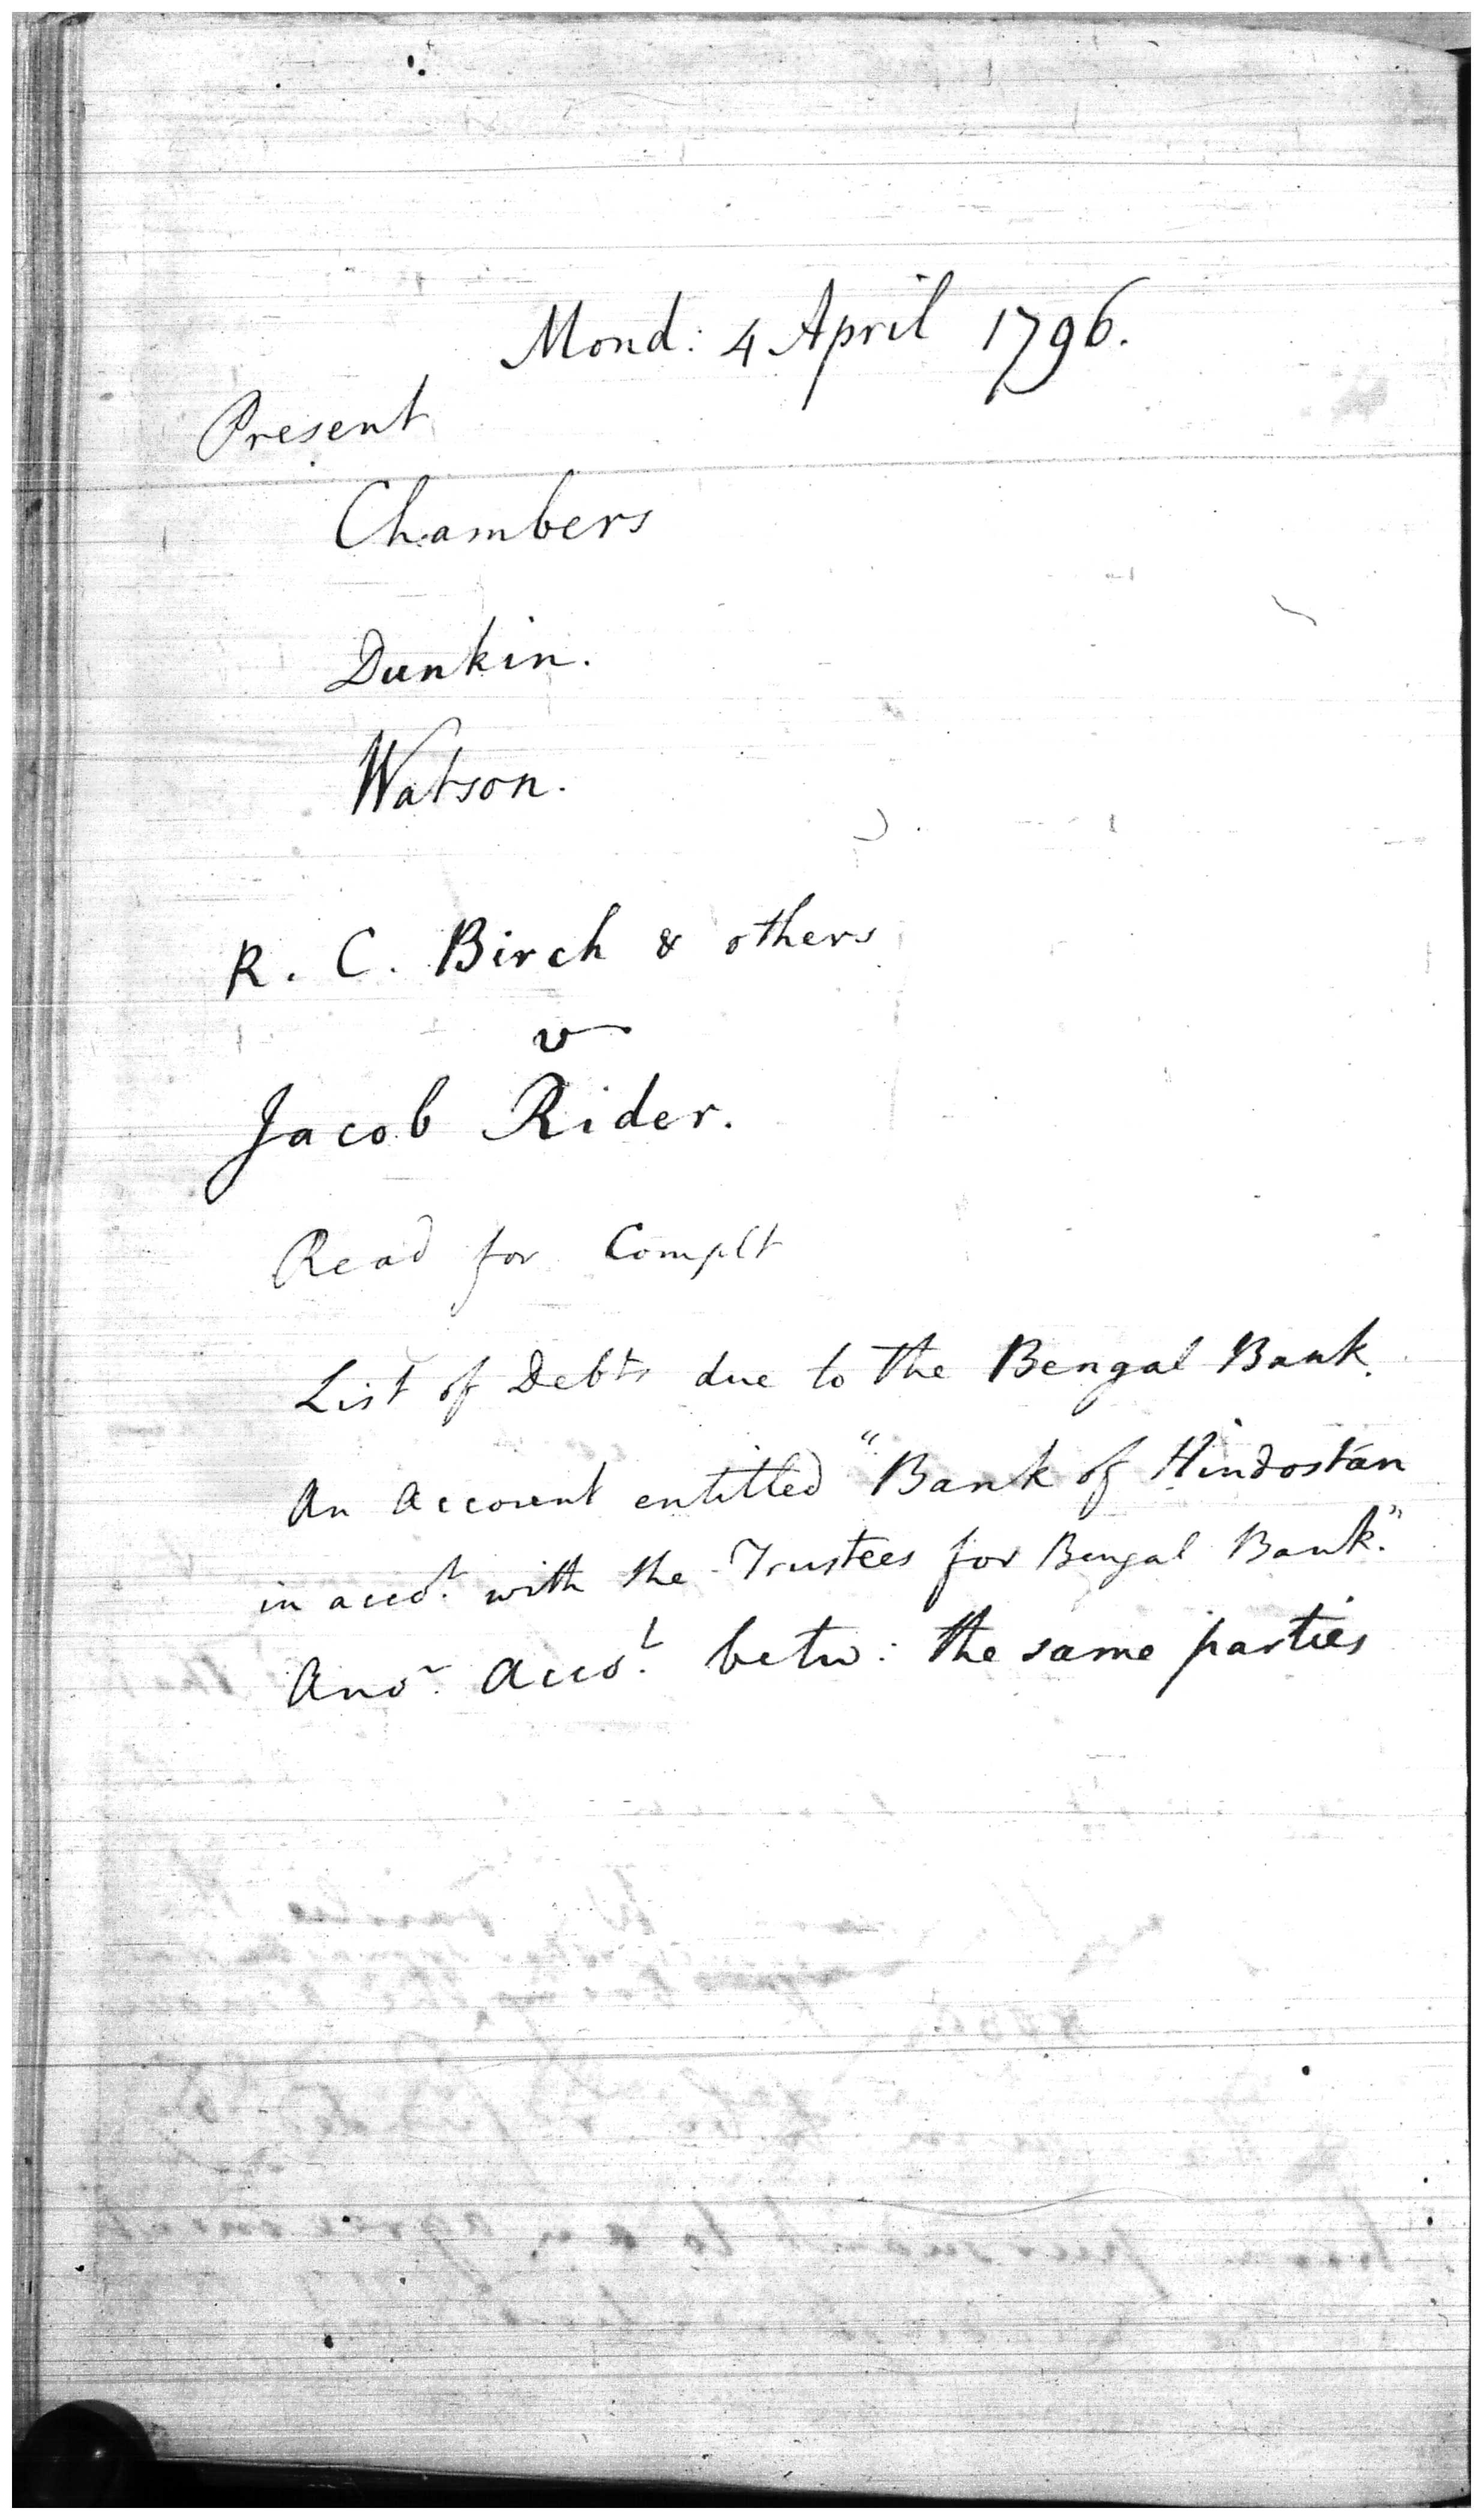 Mond: 4 April 1796.
Present
Chambers
Dunkin.
Watson.
R. C. Birch & others
v
Jacob Rider.
Read for Complt
List of Debts due to the Bengal Bank.
An Account entitled "Bank of Hindostan
in acco.t with the Trustees for Bengal Bank."
Ano.r Acco.t betw: the same parties